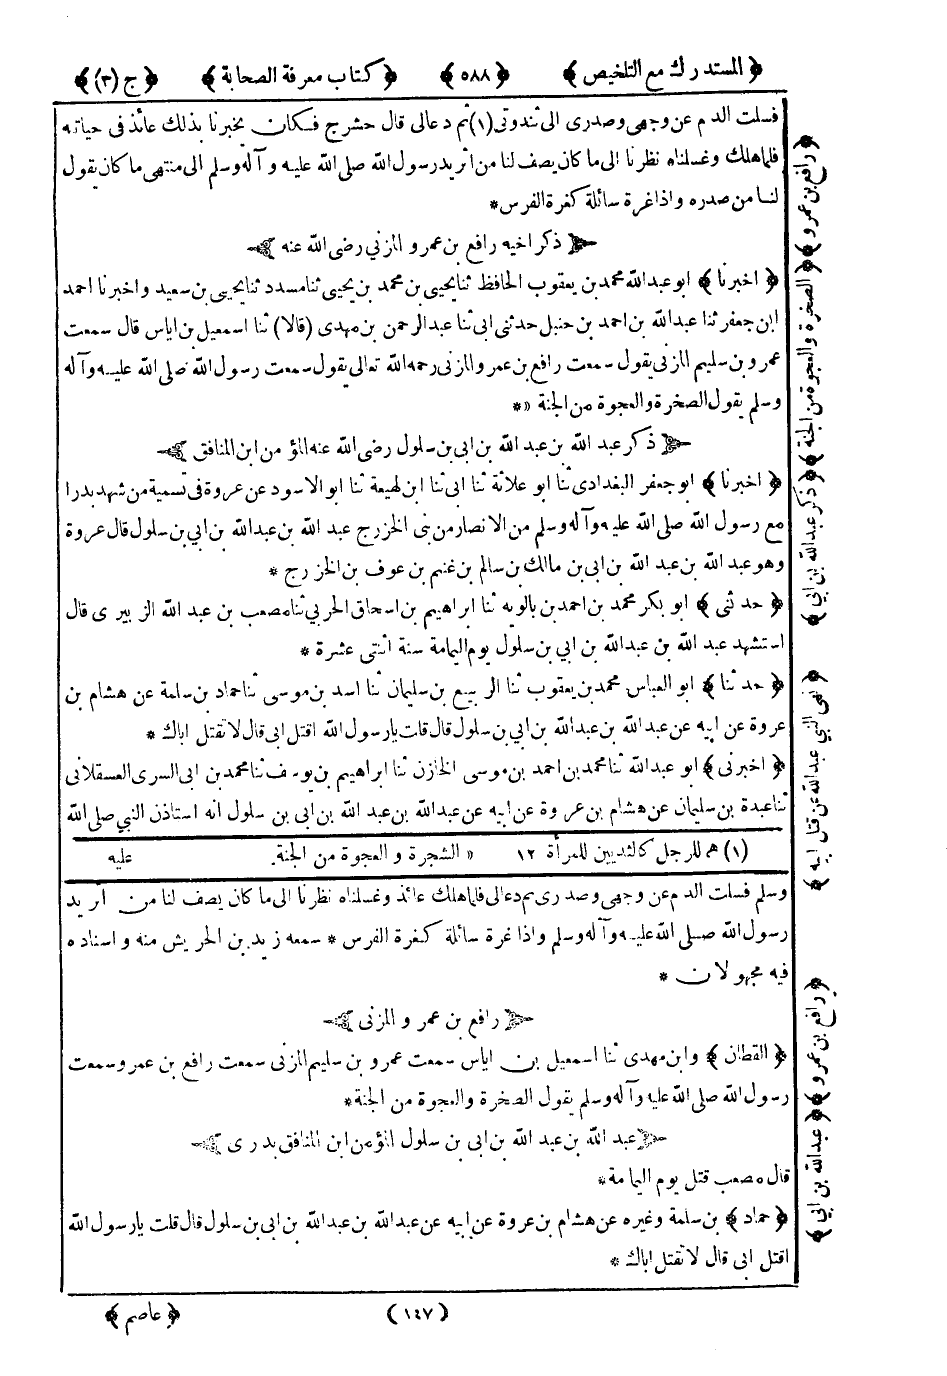 ﴿المستدرك مع التلخيص﴾ ﴿٥٨٨﴾ ﴿كتاب معرفة الصحابة﴾ ﴿ج (٣)﴾
فسلت الدم عن وجهي وصدرى الى ثندوتى (١) ثم دعالى قال حشرج فكان يخبرنا بذلك عائذ فى حياته
فلما هلك وغسلناه نظرنا الى ما كان يصف لنا من أثر يد رسول الله صلى الله عليه وآله وسلم الى منتهى ما كان يقول
لنا من صدره واذا غرة سائلة كغرة الفرس *
ذكر اخيه رافع بن عمرو المزني رضى الله عنه
﴿اخبرنا﴾ ابو عبدالله محمد بن يعقوب الحافظ ثنا يحيى بن محمد بن يحيى ثنا مسدد ثنا يحيى بن سعيد واخبرنا احمد
ابن جعفر ثنا عبدالله بن احمد بن حنبل حدثنى ابى ثنا عبدالرحمن بن مهدى (قالا) ثنا اسمعيل بن اياس قال سمعت
عمرو بن سليم المزنى يقول سمعت رافع بن عمرو المزنى رحمه الله تعالى يقول سمعت رسول الله صلى الله عليه وآله
وسلم يقول الصخرة والعجوة من الجنة «*
ذكر عبد الله بن عبد الله بن ابى بن سلول رضى الله عنه المؤمن ابن المنافق
﴿اخبرنا﴾ ابو جعفر البغدادى ثنا ابو علاثة ثنا ابى ثنا ابن لهيعة ثنا ابو الاسود عن عروة فى تسمية من شهد بدرا
مع رسول الله صلى الله عليه وآله وسلم من الانصار من بنى الخزرج عبد الله بن عبدالله بن ابي بن سلول قال عروة
وهو عبد الله بن عبد الله بن ابى بن مالك بن سالم بن غنيم بن عوف بن الخزرج *
﴿حدثنى﴾ ابو بكر محمد بن احمد بن بالويه ثنا ابراهيم بن اسحاق الحربي ثنا مصعب بن عبد الله الزبيرى قال
استشهد عبد الله بن عبدالله بن ابي بن سلول يوم اليمامة سنة اثنتى عشرة *
﴿حدثنا﴾ ابو العباس محمد بن يعقوب ثنا الربيع بن سليمان ثنا اسد بن موسى ثنا حماد بن سلمة عن هشام بن
عروة عن ابيه عن عبدالله بن عبدالله بن ابي بن سلول قال قلت يا رسول الله اقتل ابى قال لا تقتل اباك *
﴿اخبرنى﴾ ابو عبدالله ثنا محمد بن احمد بن موسى الخازن ثنا ابراهيم بن يوسف ثنا محمد بن ابى السرى العسقلانى
ثنا عبدة بن سليمان عن هشام بن عروة عن ابيه عن عبدالله بن عبد الله بن ابى بن سلول أنه استاذن النبي صلى الله
(١) هم للرجل كالثديين للمرأة ١٢ « الشجرة و العجوة من الجنة. عليه
وسلم فسلت الدم عن وجهى وصدرى ثم دعالى فلما هلك عائذ وغسلناه نظرنا الى ما كان يصف لنا من أثر يد
رسول الله صلى الله عليه وآله وسلم واذا غرة سائلة كغرة الفرس * سمعه زيد بن الحريش منه واسناده
فيه مجهولان *
رافع بن عمرو المزنى
﴿القطان﴾ وابن مهدى ثنا اسمعيل بن اياس سمعت عمرو بن سليم المزنى سمعت رافع بن عمرو سمعت
رسول الله صلى الله عليه وآله وسلم يقول الصخرة والعجوة من الجنة *
عبد الله بن عبد الله بن ابى بن سلول المؤمن ابن المنافق بدرى
قال مصعب قتل يوم اليمامة *
﴿حماد﴾ بن سلمة وغيره عن هشام بن عروة عن ابيه عن عبدالله بن عبدالله بن ابى بن سلول قال قلت يا رسول الله
اقتل ابى قال لا تقتل اباك *
(١٤٧) ﴿عاصم﴾
﴿رافع بن عمرو﴾ ﴿الصخرة والعجوة من الجنة﴾ ﴿ذكر عبدالله بن ابي﴾
﴿نهى النبي عبدالله عن قتل ابيه﴾
﴿رافع بن عمرو﴾ ﴿عبدالله بن ابي﴾